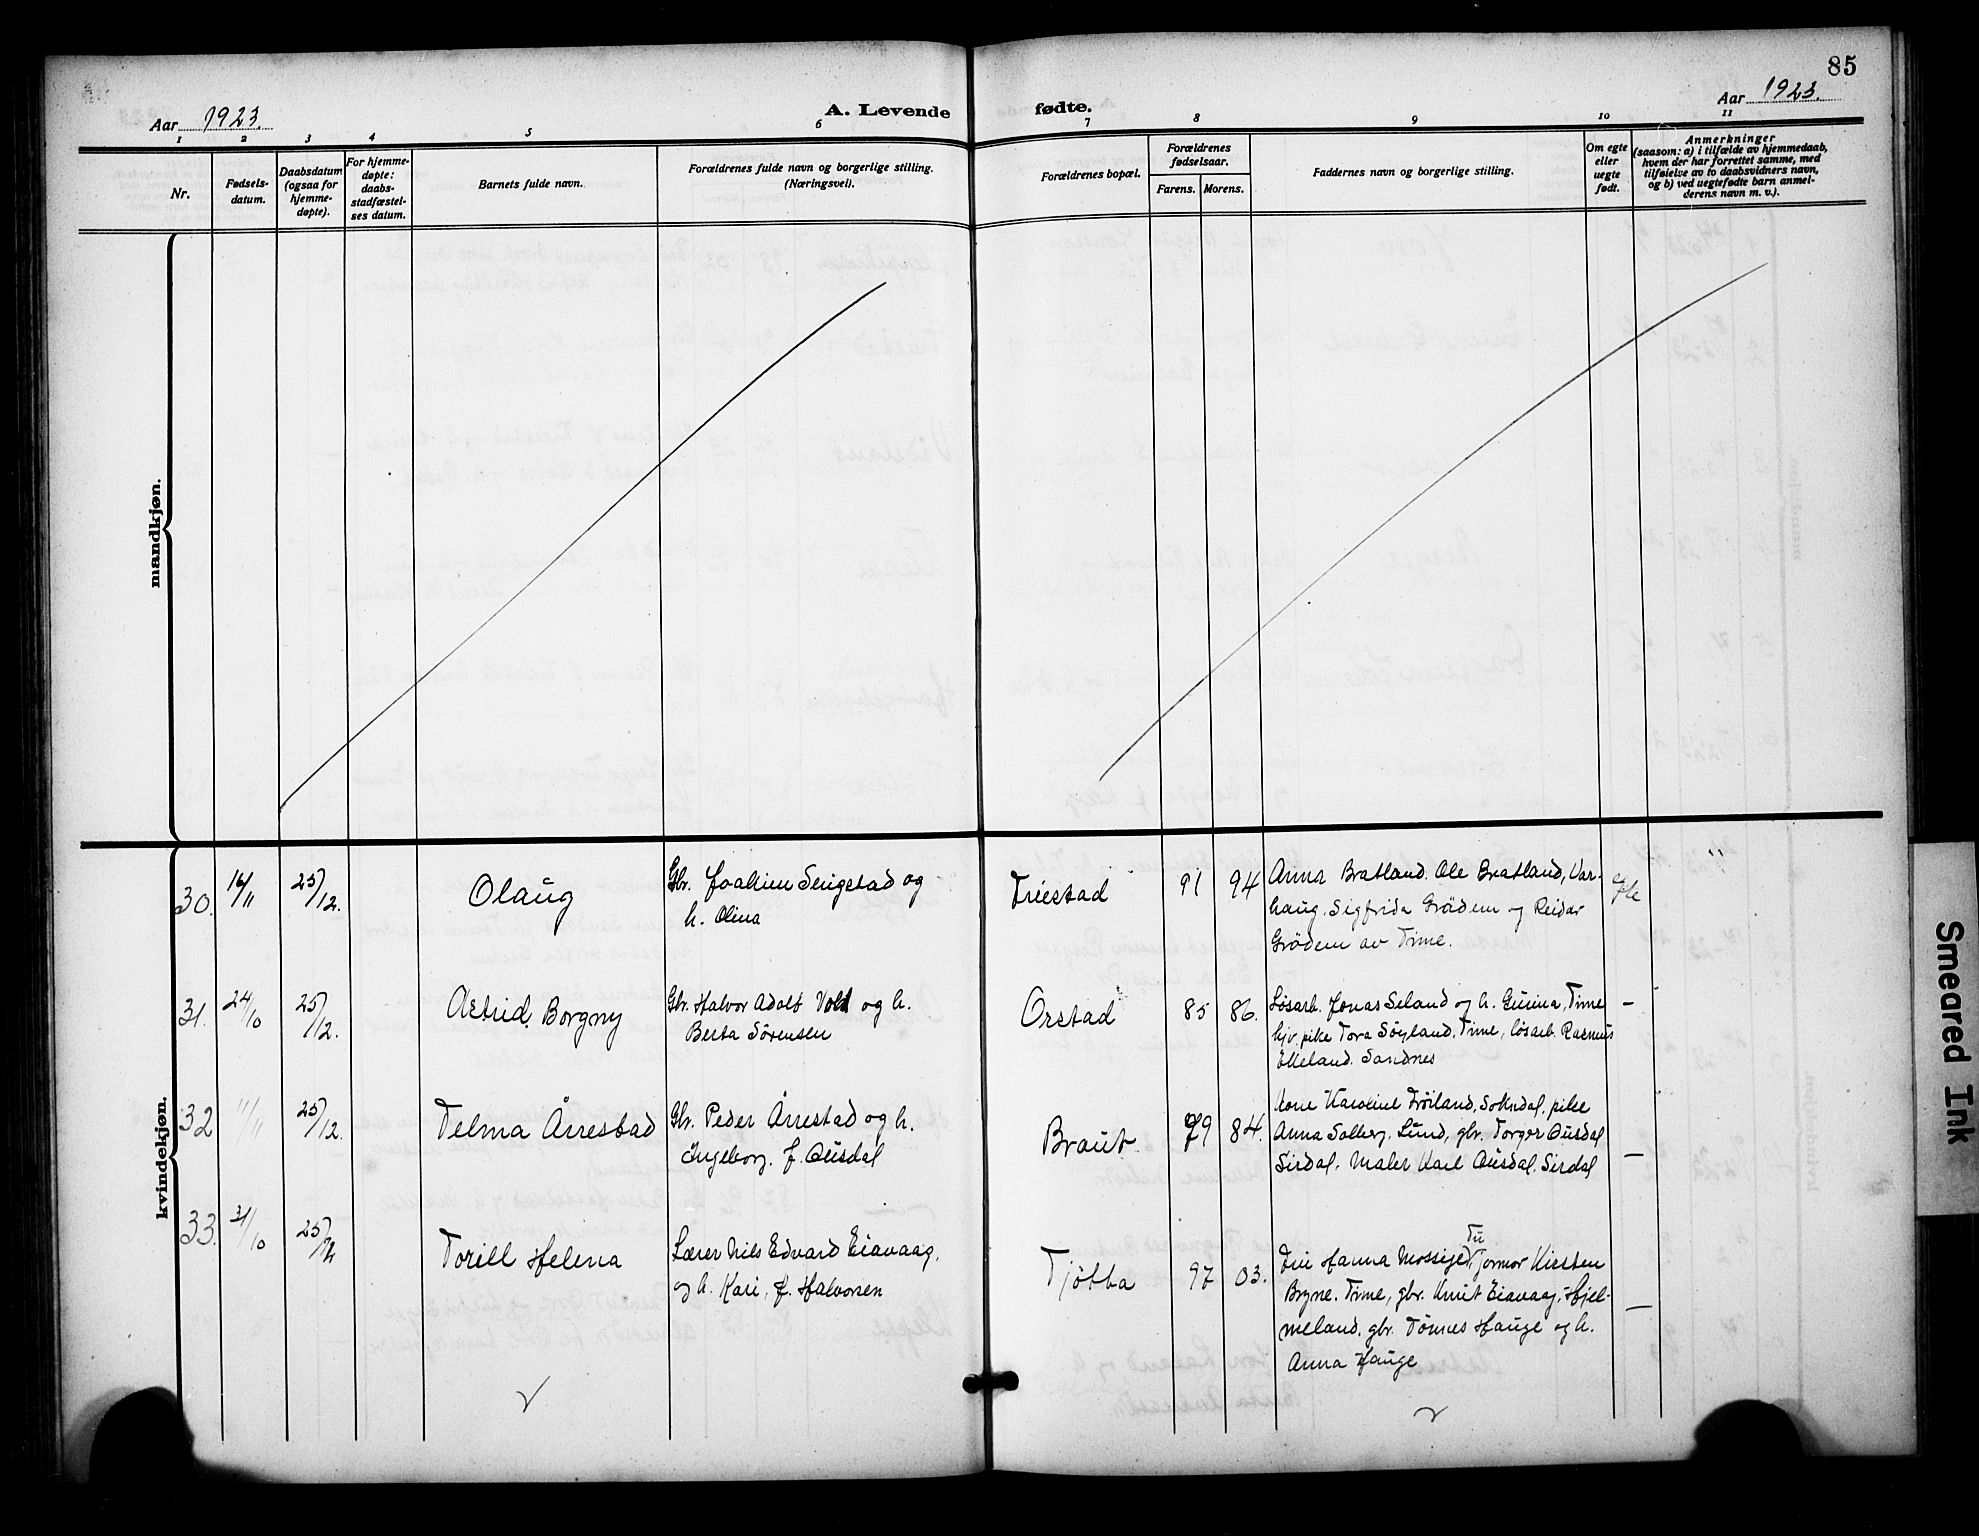 85
Aar 1923.
A. Levende
fødte.
Aar 1923.
1
2
3
4
5
6
7
8
9
10
11
Nr.
Fødsels-
datum.
Daabsdatum
(ogsaa for
hjemme-
døpte).
For hjemme-
døpte:
daabs-
stadfæstel-
ses datum.
Barnets fulde navn.
Forældrenes fulde navn og borgerlige stilling.
(Næringsvei).
Forældrenes bopæl.
Forældrenes
fødselsaar.
Farens.
Morens.
Faddernes navn og borgerlige stilling.
Om egte
eller
uegte
født.
Anmerkninger
(saasom: a) i tilfælde av hjemmedaab,
hvem der har forrettet samme, med
tilføielse av to daabsvidners navn,
og b) ved uegtefødte barn anmel-
derens navn m. v.).
mandkjøn.
kvindekjøn.
30.
16/11
25/12.
Olaug
Gbr. Joakim Serigstad og
h. Olina
Friestad
91
94
Anna Bratland. Ole Bratland, Var-
haug. Sigfrida Grödem og Reidar
Grödem av Time.
egte
31.
24/10
25/12.
Astrid Borgny
Gbr. Halvor Adolf Vold og h.
Berta Sörensen
Orstad
85
86.
Løsarb. Jonas Seland og h. Gurina, Time
hjv. pike Tora Søyland, Time, løsarb. Rasmus
Elleland. Sandnes
—
32
11/11
25/12.
Telma Årrestad
Gbr. Peder Årrestad og h.
Ingeborg, f. Ousdal
Braut
79
84.
Kone Karoline Frøiland, Sokndal, pike
Anna Solberg, Lund, gbr. Torger Ousdal
Sirdal. Maler Karl Ousdal. Sirdal
—
33.
31/10
25/12
Torill Helena
Lærer Nils Edvard Eiavaag.
og h. Kari, f. Halvorsen
Tjøtta
97
03.
Tu
Frü Hanna Mossige, Jormor Kirsten
Bryne. Time, gbr. Knut Eiavaag, Hjel-
meland, gbr. Tönnes Hauge og h.
Anna Hauge
—
Smeared Ink